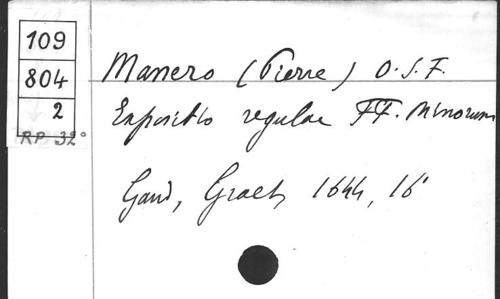 109
804
2
RP 32°
Manero (Pierre) O.S.F.
Expositio regulae FF. Minorum
Gand, Graet, 1644, 16°